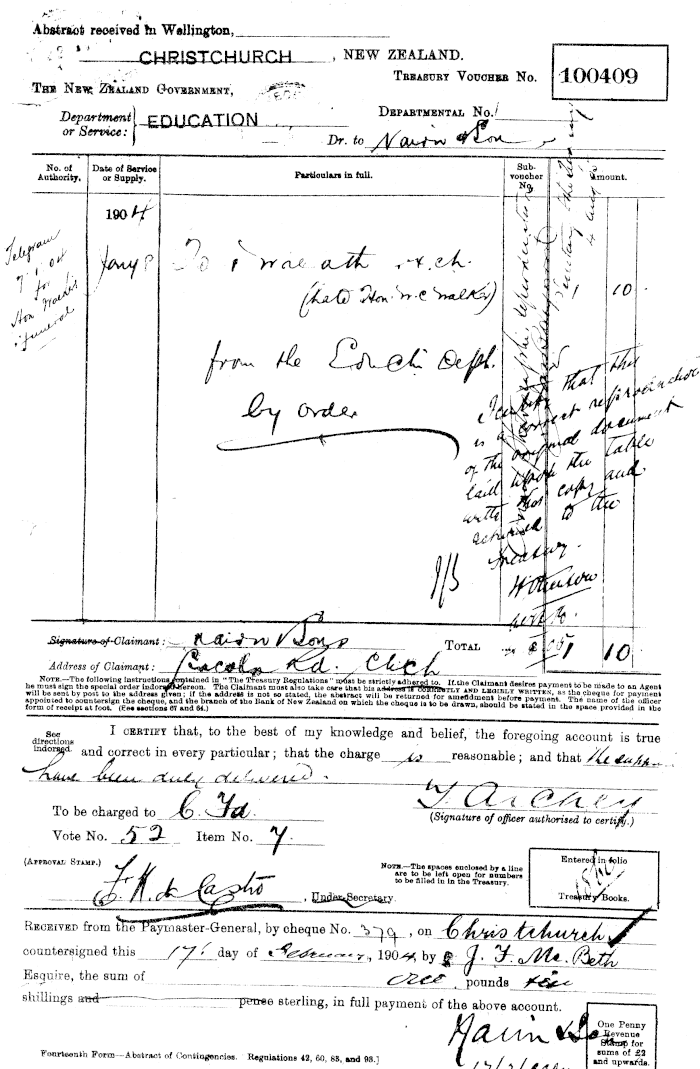 Abstract received in Wellington,
CHRISTCHURCH, NEW ZEALAND.
TREASURY VOUCHER No. 100409
THE NEW ZEALAND GOVERNMENT,
Department or Service: EDUCATION
DEPARTMENTAL No.
Dr. to Nairn & Son
No. of Authority. Date of Service or Supply. Particulars in full. Sub-voucher No. Amount.
1904
Telegram
for
Hon Walker's
funeral
Jany 8 To 1 wreath
(late Hon. W. C. Walker) 1 10
from the Educ'n Dept.
by order
I certify that this
is a correct reproduction
of the original document
laid upon the table
with this copy and
returned to the
Treasury.
Signature of Claimant: Nairn & Sons TOTAL 1 10
Address of Claimant: Lincoln Rd. Chch
NOTE.—The following instructions contained in "The Treasury Regulations" must be strictly adhered to. If the Claimant desires payment to be made to an Agent
he must sign the special order indorsed hereon. The Claimant must also take care that his address is CORRECTLY AND LEGIBLY WRITTEN, as the cheque for payment
will be sent by post to the address given; if the address is not so stated, the abstract will be returned for amendment before payment. The name of the officer
appointed to countersign the cheque, and the branch of the Bank of New Zealand on which the cheque is to be drawn, should be stated in the space provided in the
form of receipt at foot. (See sections 67 and 84.)
See directions indorsed.
I CERTIFY that, to the best of my knowledge and belief, the foregoing account is true
and correct in every particular; that the charge is reasonable; and that the supp
have been duly delivered.
To be charged to C. Fd. T. Archey
(Signature of officer authorised to certify.)
Vote No. 52 Item No. 7
(APPROVAL STAMP.)
NOTE.—The spaces enclosed by a line
are to be left open for numbers
to be filled in in the Treasury.
Entered in folio
Treasury Books.
F. K. de Castro, Under-Secretary.
RECEIVED from the Paymaster-General, by cheque No. 379, on Christchurch
countersigned this 17th day of February, 1904, by J. F. McBeth
Esquire, the sum of one pounds ten
shillings and pence sterling, in full payment of the above account.
Nairn & Son
One Penny
Revenue
Stamp for
sums of £2
and upwards.
Fourteenth Form—Abstract of Contingencies. Regulations 42, 60, 85, and 93.]